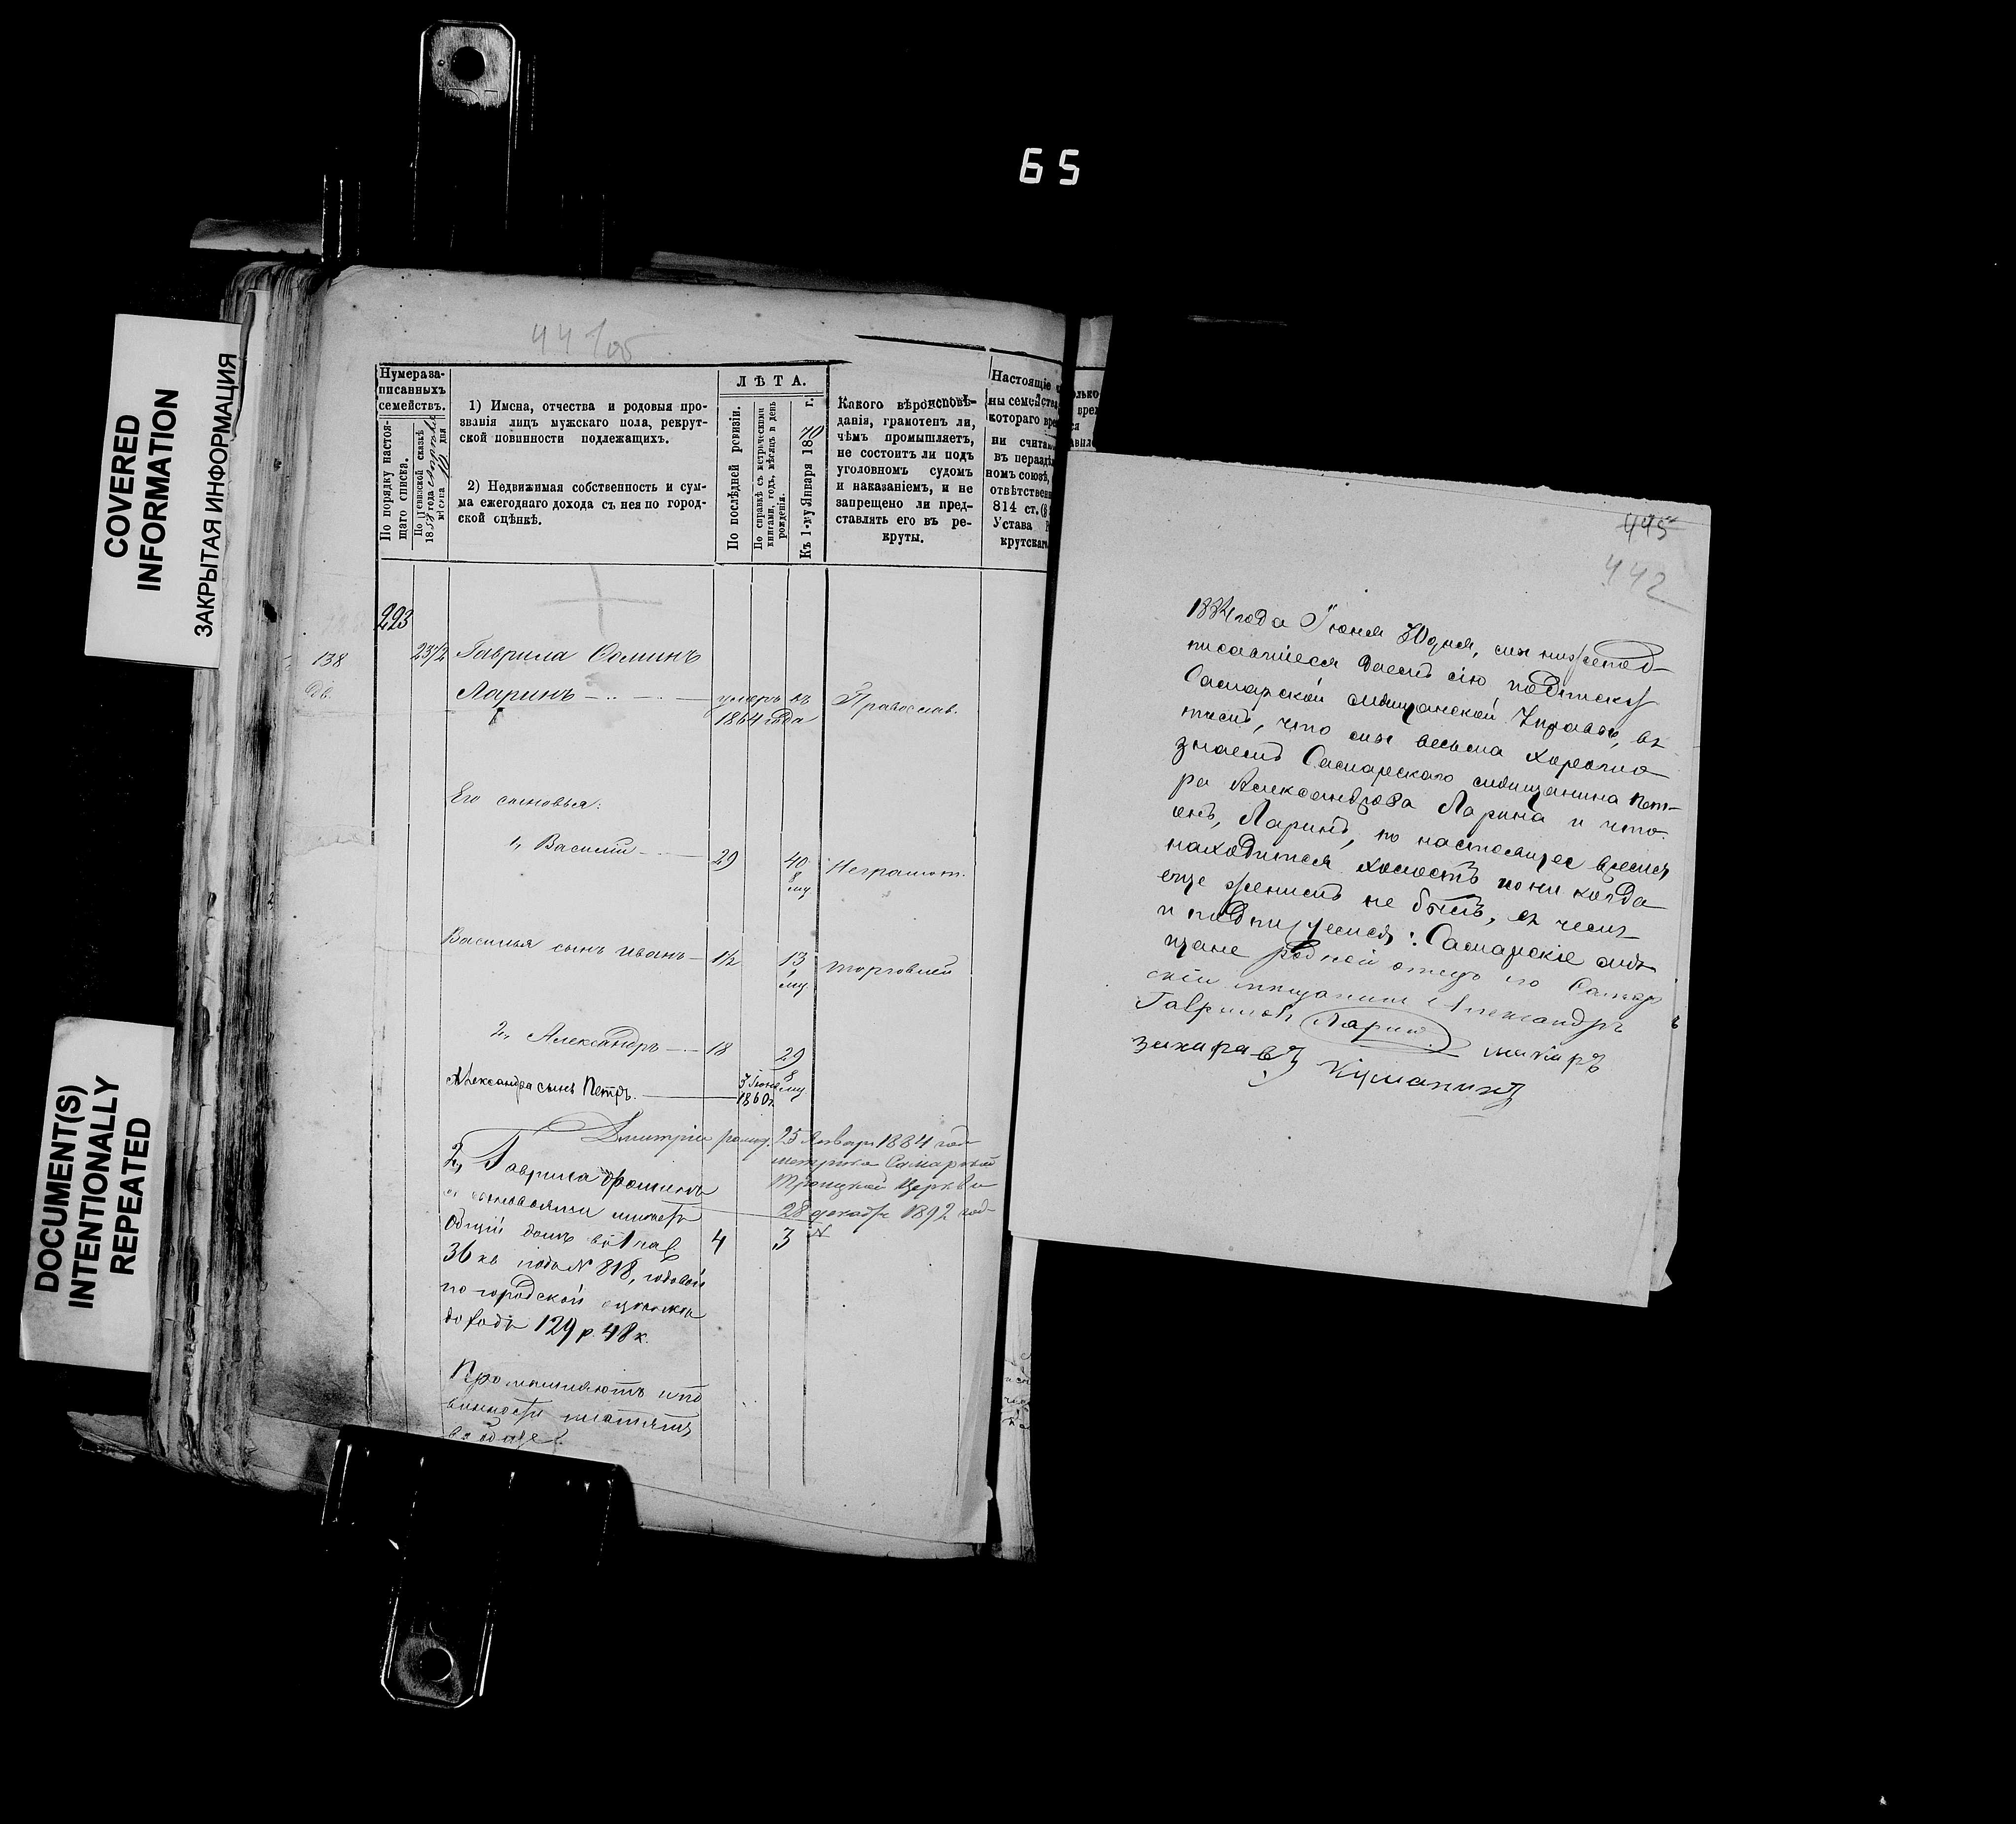 65
COVERED
INFORMATION
ЗАКРЫТАЯ ИНФОРМАЦИЯ
DOCUMENT(S)
INTENTIONALLY
REPEATED
Нумера за-
писанныхъ
семействъ.
По порядку настоя-
щаго списка.
По ревизской сказкѣ
1857 года
мѣсяца дня
1) Имена, отчества и родовыя про-
званія лицъ мужскаго пола, рекрут-
ской повинности подлежащихъ.
2) Недвижимая собственность и сум-
ма ежегоднаго дохода съ нея по город-
ской оцѣнкѣ.
ЛѢТА.
По послѣдней ревизіи.
По справкѣ съ метрическими
книгами, годъ, мѣсяцъ и день
рожденія.
Къ 1-му Января 1870 г.
Какого вѣроисповѣ-
данія, грамотенъ ли,
чѣмъ промышляетъ,
не состоитъ ли подъ
уголовномъ судомъ
и наказаніемъ, и не
запрещено ли пред-
ставлять его въ ре-
круты.
Настоящіе
ны семейства
котораго вре
ни счита
въ нераздѣ
номъ союзѣ,
отвѣтствен
814 ст. (§
Устава
крутскаго
223
138
2372 Гаврила Ѳоминъ
Ларинъ умеръ въ Православ.
1864 года
Его сыновья:
1, Василій 29 40 Неграмот.
8 му
Василья сынъ Иванъ 1½ 13 торговлей
1 му
2, Александръ 18 29
8 му
Александра сынъ Петръ. 3 Іюня
1860 г.
Дмитрій 25 Января 1884 год
метрика Самарской
Троицкой Церкви
28 декабр 1892 год
2, Гаврила Ѳоминъ
съ сыновьями имѣетъ
общій домъ въ 1 час. 4 3
36 кв. подъ N 818, годовой
по городской оцѣнкѣ
доходъ 129 р. 48 к.
Промышляютъ и по
винности платятъ
вообще.
445
442
года Іюня дня, мы нижепод-
писавшіеся даемъ сію подписку
Самарской мѣщанской Управѣ, въ
томъ, что мы весьма хорошо
знаемъ Самарскаго мѣщанина Пет-
ра Александрова Ларина и что
онъ, Ларинъ, по настоящее время
находится холостъ и никогда
еще женатъ не былъ, въ чемъ
и подпишемся: Самарскіе мѣ-
щане родной отецъ его Самар
скій мещанинъ Александръ
Гавриловъ Ларинъ
Захаравъ Куманинъ